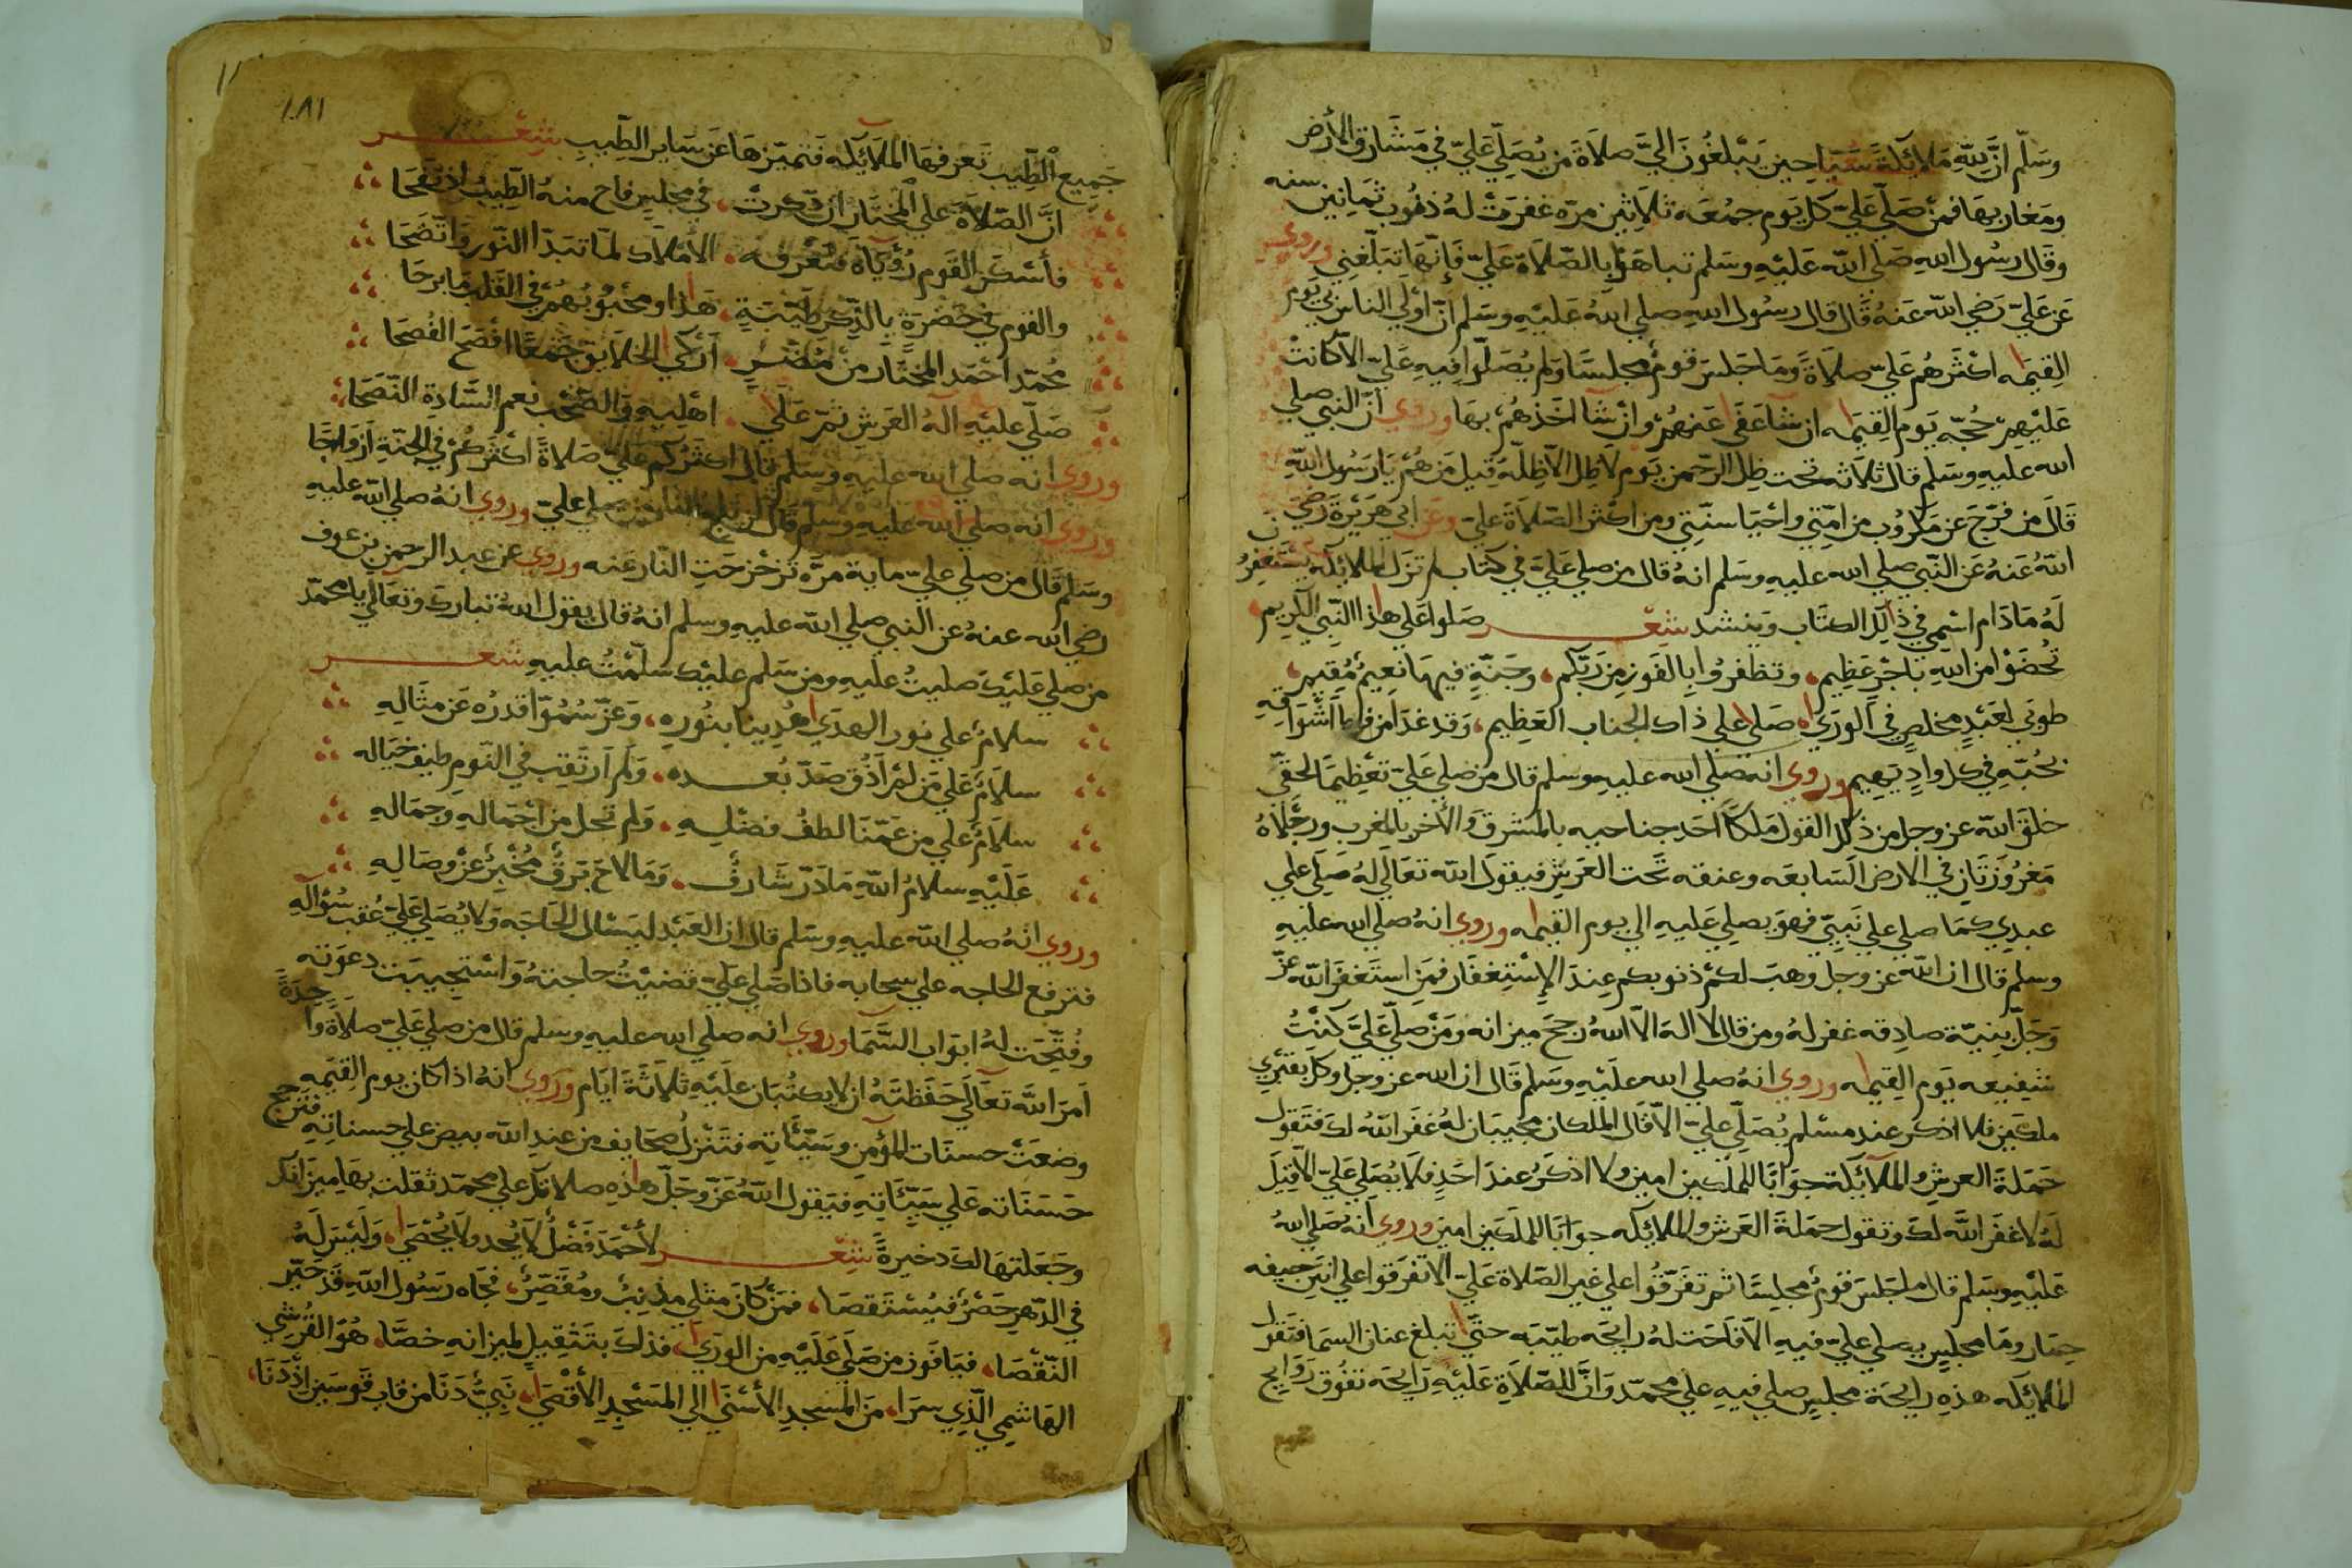 وسلم ان لله ملائكة سياحين يبلغون الي صلاة من يصلي علي في مشارق الارض
ومغاربها فمن صلي علي كل يوم جمعه ثلاثين مره غفرت له ذنوب ثمانين سنه
وقال رسول الله صلي الله عليه وسلم تباهوا بالصلاة علي فإنها تبلغني وروي
عن علي رضي الله عنه قال قال رسول الله صلي الله عليه وسلم ان اولي الناس بي يوم
القيمه اكثرهم علي صلاة وما جلس قوم مجلسا ولم يصلوا فيه علي الا كانت
عليهم حجه يوم القيمه ان شا عفي عنهم وان شا اخذهم بها وروي ان النبي صلي
الله عليه وسلم قال ثلاثه تحت ظل الرحمن يوم لا ظل الا ظله قيل من هم يارسول الله
قال من فرج عن مكروب من امتي واحيا سنتي ومن اكثر الصلاة علي وعن ابي هريرة رضي
الله عنه عن النبي صلي الله عليه وسلم انه قال من صلي علي في كتاب لم تزل الملائكه يستغفرون
له ما دام اسمي في ذالك الكتاب وينشد شعر صلوا علي هذا النبي الكريم
تحضوا من الله باجر عظيم، وتظفروا بالفوز من ربكم، وجنة فيها نعيم مقيم،
طوبي لعبد مخلص في الوري، صلي علي ذاك الجناب العظيم، وقد غدا من فرط اشواقه
بحبه في كل واد يهيم وروي انه صلي الله عليه وسلم قال من صلي علي تعظيما لحقي
خلق الله عز وجل من ذلك القول ملكا احد جناحيه بالمشرق والأخر بالمغرب ورجلاه
مغروزتان في الارض السابعه وعنقه تحت العرش فيقول الله تعالي له صلي علي
عبدي كما صلي علي نبيي فهو يصلي عليه الي يوم القيمه وروي انه صلي الله عليه
وسلم قال ان الله عز وجل وهب لكم ذنوبكم عند الإستغفار فمن استغفر الله عز
وجل بنية صادقه غفر له ومن قال لا اله الا الله رجح ميزانه ومن صلي علي كنت
شفيعه يوم القيمه وروي انه صلي الله عليه وسلم قال ان الله عز وجل وكل بقبري
ملكين فلا اذكر عند مسلم يصلي علي الا قال الملكان مجيبان له غفر الله لك فتقول
حملة العرش والملائكة جوابا للملكين امين ولا اذكر عند احد فلا يصلي علي الا قيل
له لا غفر الله لك وتقول حملة العرش والملائكه جوابا للملكين امين وروي انه صلي الله
عليه وسلم قال ما جلس قوم مجلسا ثم تفرقوا علي غير الصلاة علي الا تفرقوا علي انتن جيفه
حمار وما مجلس يصلي علي فيه الا فاحت له رايحه طيبه حتي تبلغ عنان السما فتقول
الملائكه هذه رايحة مجلس صلي فيه علي محمد وان للصلاة عليه رايحة تفوق روايح
جميع الطيب تعرفها الملائكه فتميزها عن ساير الطيب شعر
ان الصلاة علي المختار ان ذكرت، في مجلس فاح منه الطيب اذ نفحا
فأسكر القوم رؤياه فتعرفه، الأملاك لما تبدا النور واتضحا
والقوم في حضرة بالذكر طيبة، هذا ومحبوبهم في القلب ما برحا
محمد احمد المختار من مضر، ازكي الخلايق جمعا افصح الفصحا
صلي عليه اله العرش ثم علي، اهليه والصحب نعم السادة النصحا
وروي انه صلي الله عليه وسلم قال اكثركم علي صلاة اكثركم في الجنة ازواجا
وروي انه صلي الله عليه وسلم قال لن يلج النار من صلي علي وروي انه صلي الله عليه
وسلم قال من صلي علي ماية مرة تزحزحت النار عنه وروي عن عبد الرحمن بن عوف
رضي الله عنه عن النبي صلي الله عليه وسلم انه قال يقول الله تبارك وتعالي يا محمد
من صلي عليك صليت عليه ومن سلم عليك سلمت عليه شعر
سلام علي نور الهدي اهدينا بنوره، وعز سموا قدره عن مثاله
سلام علي من لم اذق صد بعده، ولم ارتقب في النوم طيف خياله
سلام علي من عمنا لطف فضله، ولم نحل من اجماله وجماله
عليه سلام الله ما در شارق، وما لاح برق مخبر عن وصاله
وروي انه صلي الله عليه وسلم قال ان العبد ليسال الحاجه ولا يصلي علي عقب سؤاله
فترفع الحاجه علي سحابه فاذا صلي علي قضيت حاجته واستجيبت دعوته
وفتحت له ابواب السما وروي انه صلي الله عليه وسلم قال من صلي علي صلاة واحدة
امر الله تعالي حفظته ان لا يكتبان عليه ثلاثة ايام وروي انه اذا كان يوم القيمه
وضعت حسنات المؤمن وسيئاته فتنزل صحايف من عند الله بيض علي حسناته فترجح
حسناته علي سيئاته فيقول الله عز وجل هذه صلاتك علي محمد ثقلت بها ميزانك
وجعلتها لك ذخيرة شعر لأحمد فضل لا يحد ولا يحصي، وليس له
في الدهر حصر فيستقصا، فمن كان مثلي مذنب ومقصر، فجاه رسول الله قد جبر
النقصا، فيا فوز من صلي عليه من الوري، فذلك بتثقيل لميزانه خصا، هو القرشي
الهاشمي الذي سرا، من المسجد الأسني الي المسجد الأقصي، نبي دنا من قاب قوسين اذ دنا،